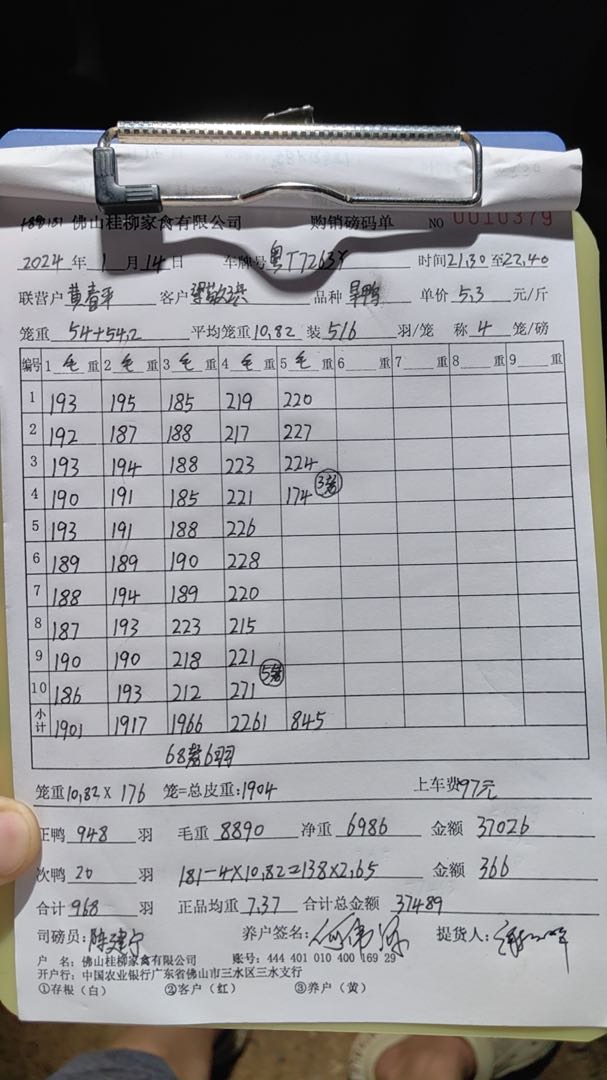 佛山桂柳家禽有限公司 购销磅码单 NO 0010379
2024年1月14日 车牌号粤T7263Y 时间21,30至22,40
联营户黄春平 客户 品种旱鸭 单价5,3元/斤
笼重 54+54,2 平均笼重10,82 装5/6羽/笼 称4笼/磅
编号 1毛重 2毛重 3毛重 4毛重 5毛重 6 重 7 重 8 重 9 重
1 193 195 185 219 220
2 192 187 188 217 227
3 193 194 188 223 224
4 190 191 185 221 174 3笼
5 193 191 188 226
6 189 189 190 228
7 188 194 189 220
8 187 193 223 215
9 190 190 218 221
10 186 193 212 271 5笼
小计 1901 1917 1966 2261 845
68笼6羽
笼重10,82X 176 笼=总皮重:1904 上车费97元
正鸭 948 羽 毛重 8890 净重 6986 金额 37026
次鸭 20 羽 181-4X10,82=138X2,65 金额 366
合计 968 羽 正品均重 7,37 合计总金额 37489
司磅员:陈建宁 养户签名: 提货人:
户 名:佛山桂柳家禽有限公司 账号:444 401 010 400 169 29
开户行:中国农业银行广东省佛山市三水区三水支行
①存根(白) ②客户(红) ③养户(黄)